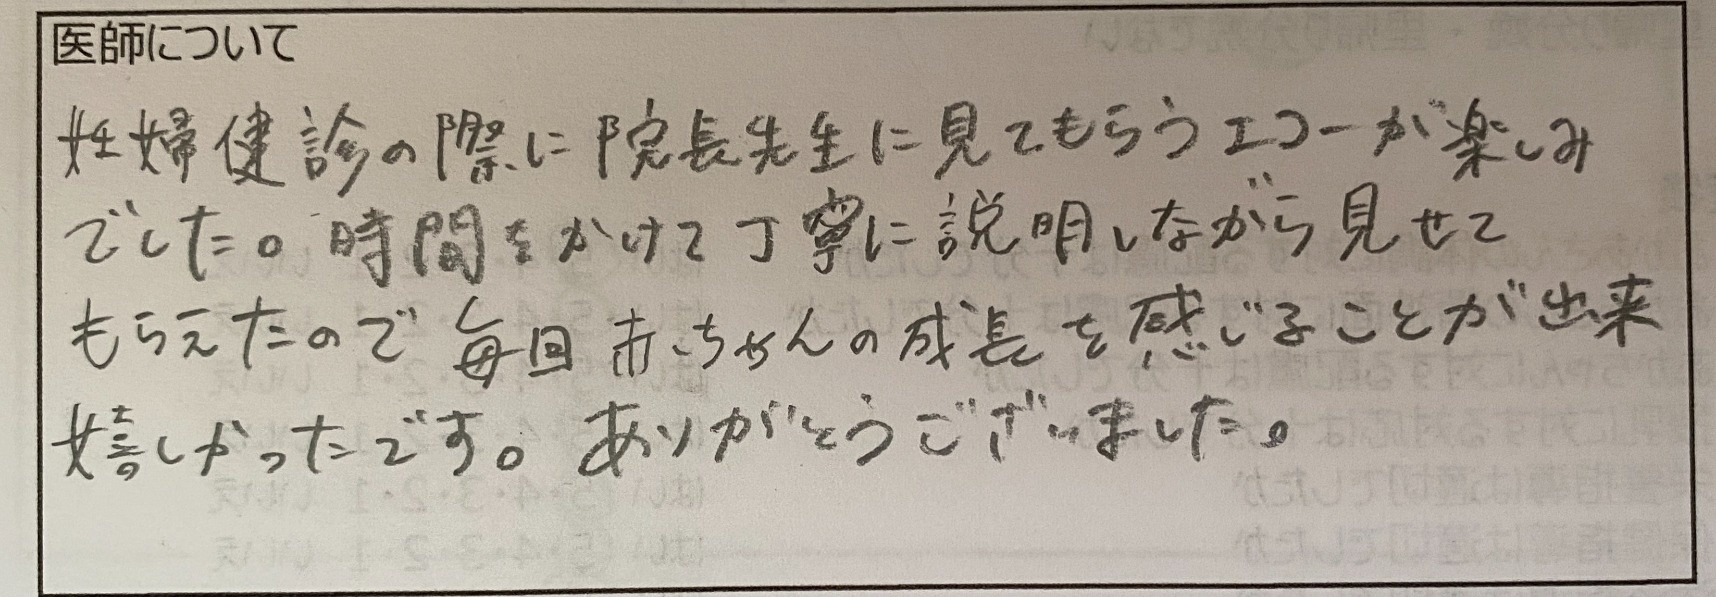 医師について
妊婦健診の際に院長先生に見てもらうエコーが楽しみ
でした。時間をかけて丁寧に説明しながら見せて
もらえたので毎回赤ちゃんの成長を感じることが出来
嬉しかったです。ありがとうございました。